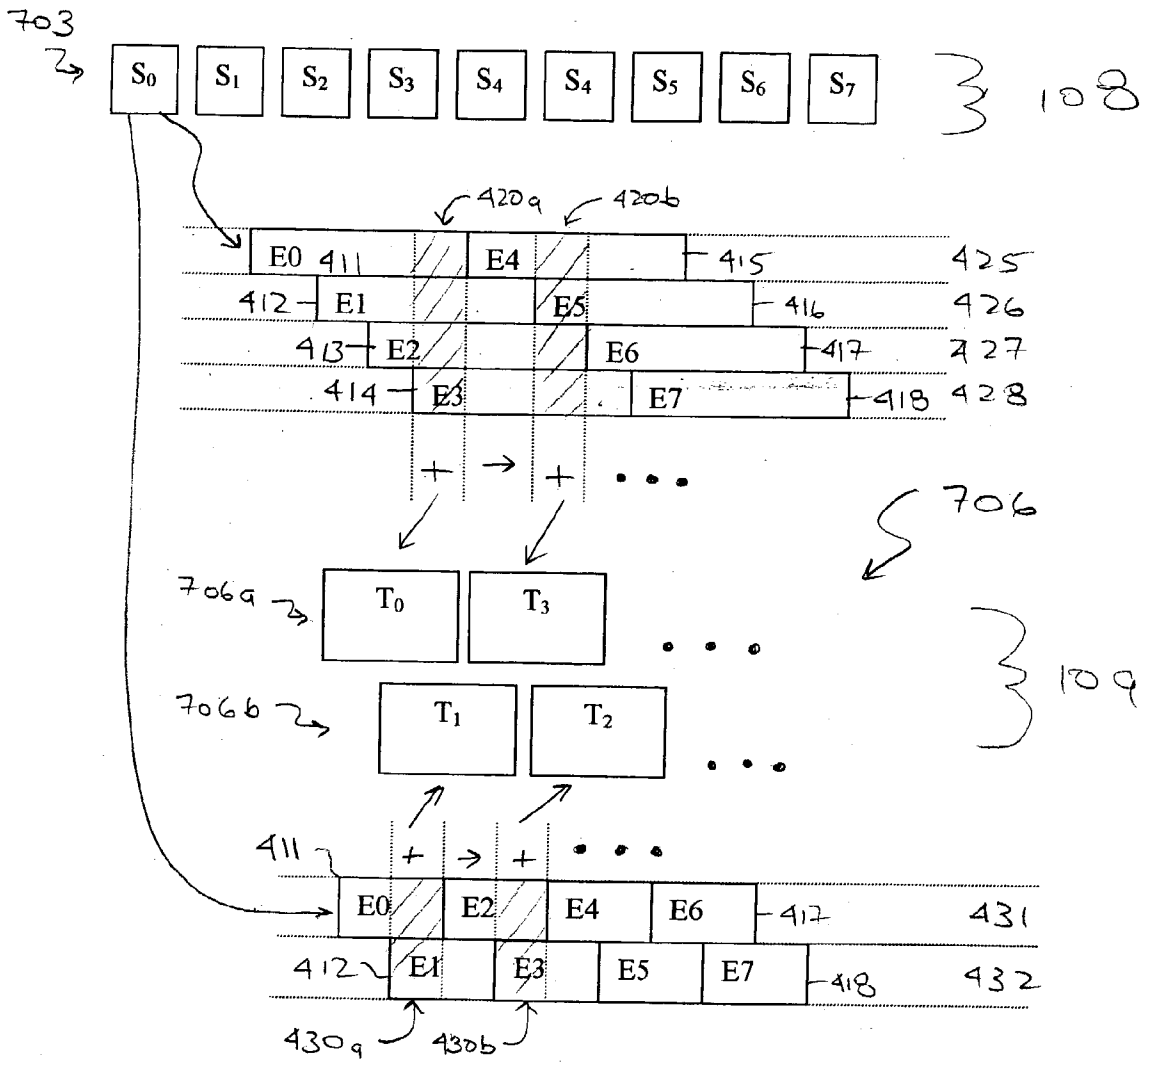 703
S0 S1 S2 S3 S4 S4 S5 S6 S7
108
420a 420b
E0 411 E4 415 425
412 E1 E5 416 426
413 E2 E6 417 427
414 E3 E7 418 428
+ → + • • •
706
706a T0 T3 • • •
109
706b T1 T2 • • •
411 + → + • • •
E0 E2 E4 E6 417 431
412 E1 E3 E5 E7 418 432
430a 430b